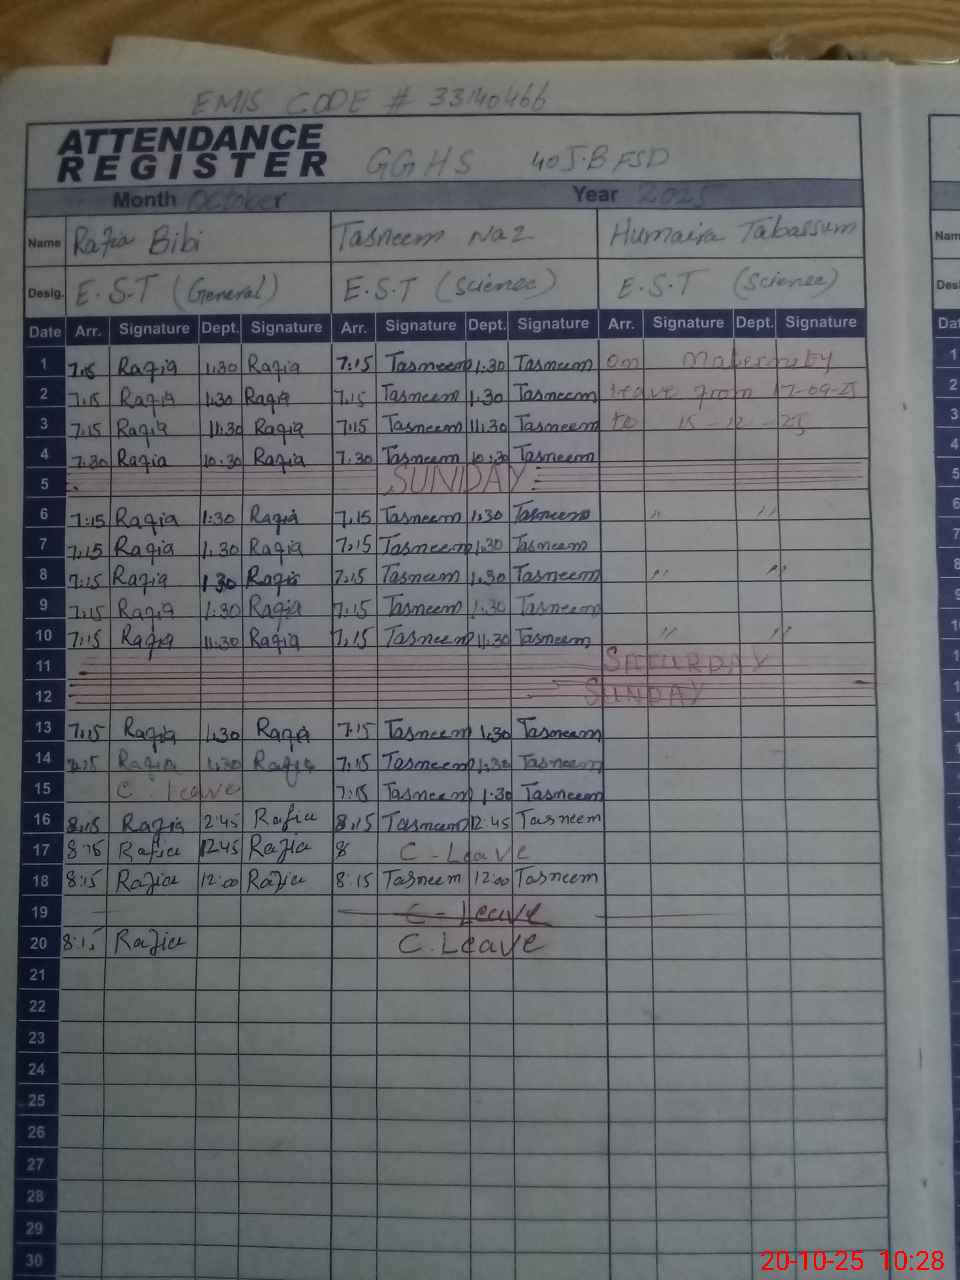 EMIS CODE # 33140466
ATTENDANCE
REGISTER GGHS 40 J.B FSD
Month October Year 2025
Name Razia Bibi Tasneem Naz Humaira Tabassum Nam
Desig. E.S.T (General) E.S.T (Science) E.S.T (Science) Desi
Date Arr. Signature Dept. Signature Arr. Signature Dept. Signature Arr. Signature Dept. Signature Dat
1 Razia 1:30 Razia 7:15 Tasneem 1:30 Tasneem on Maternity 1
2 7:15 Razia 1:30 Razia 7:15 Tasneem 1:30 Tasneem leave from 17-09-25 2
3 7:15 Razia 11:30 Razia 7:15 Tasneem 11:30 Tasneem to 15-12-25 3
4 7:30 Razia 10:30 Razia 7:30 Tasneem 10:30 Tasneem 4
5 SUNDAY 5
6 7:15 Razia 1:30 Razia 7:15 Tasneem 1:30 Tasneem " " 6
7 7:15 Razia 1:30 Razia 7:15 Tasneem 1:30 Tasneem 7
8 7:15 Razia 1:30 Razia 7:15 Tasneem 1:30 Tasneem " " 8
9 7:15 Razia 1:30 Razia 7:15 Tasneem 1:30 Tasneem 9
10 7:15 Razia 11:30 Razia 7:15 Tasneem 11:30 Tasneem " " 10
11 SATURDAY
12 SUNDAY
13 7:15 Razia 1:30 Razia 7:15 Tasneem 1:30 Tasneem
14 7:15 Razia 1:30 Razia 7:15 Tasneem 1:30 Tasneem
15 C. leave 7:15 Tasneem 1:30 Tasneem
16 8:15 Razia 2:45 Razia 8:15 Tasneem 2:45 Tasneem
17 8:15 Razia 12:45 Razia 8 C-Leave
18 8:15 Razia 12:00 Razia 8:15 Tasneem 12:00 Tasneem
19 C-Leave
20 8:15 Razia C.Leave
21
22
23
24
25
26
27
28
29
30
20-10-25 10:28